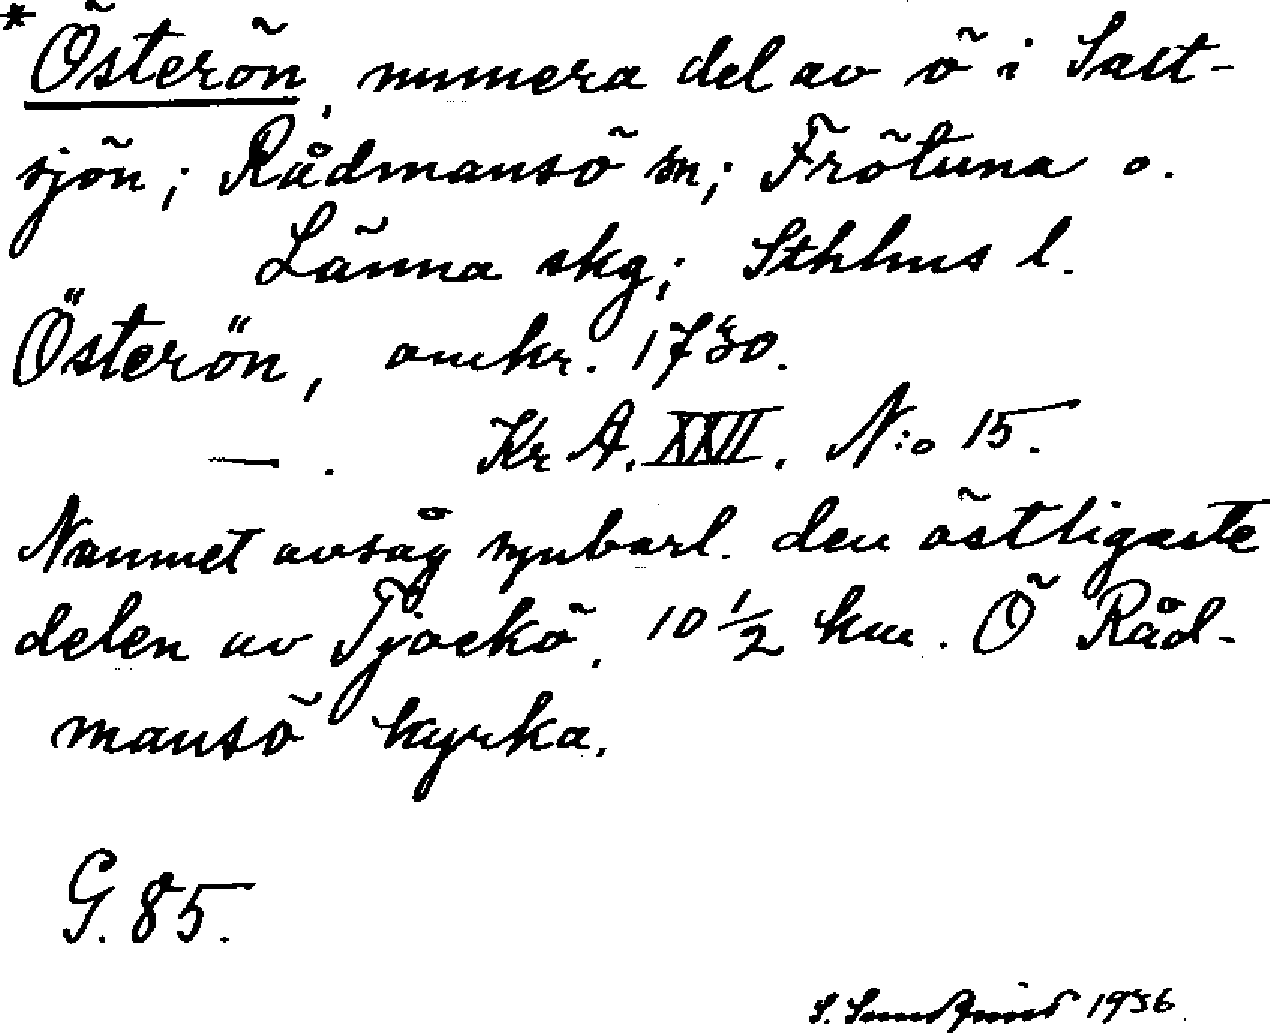 * Österön, numera del av ö i Salt-
sjön; Rådmansö sn; Frötuna o.
Länna skg; Sthlms l.
Österön, omkr. 1730.
— . Kr A. XXII. N:o 15.
Namnet avsåg synbarl. den östligaste
delen av Tjockö, 10 1/2 km. Ö Råd-
mansö kyrka.
G. 85.
S. 1936.